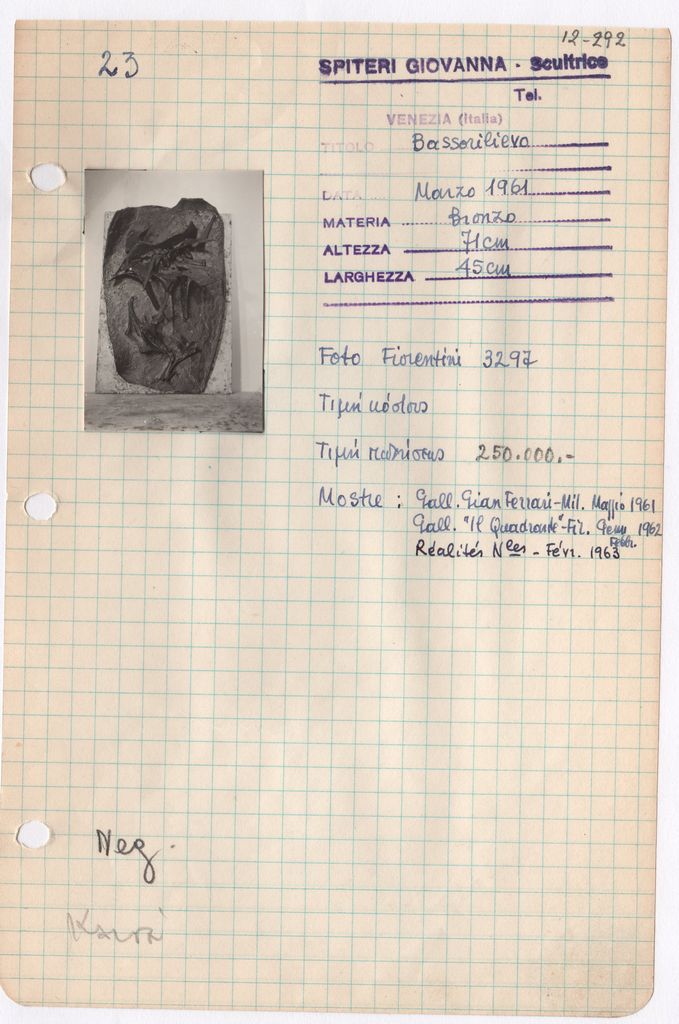 12-292
23
SPITERI GIOVANNA - Scultrice
Tel.
VENEZIA (Italia)
TITOLO Bassorilievo
DATA Marzo 1961
MATERIA Bronzo
ALTEZZA 71cm
LARGHEZZA 45cm
Foto Fiorentini 3297
Τιμή κόστους
Τιμή πωλήσεως 250.000.-
Mostre : Gall. Gian Ferrari-Mil. Maggio 1961
Gall. "Il Quadrante"-Fir. Genn 1962
Febbr.
Réalités Nlles - Févr. 1963
Neg.